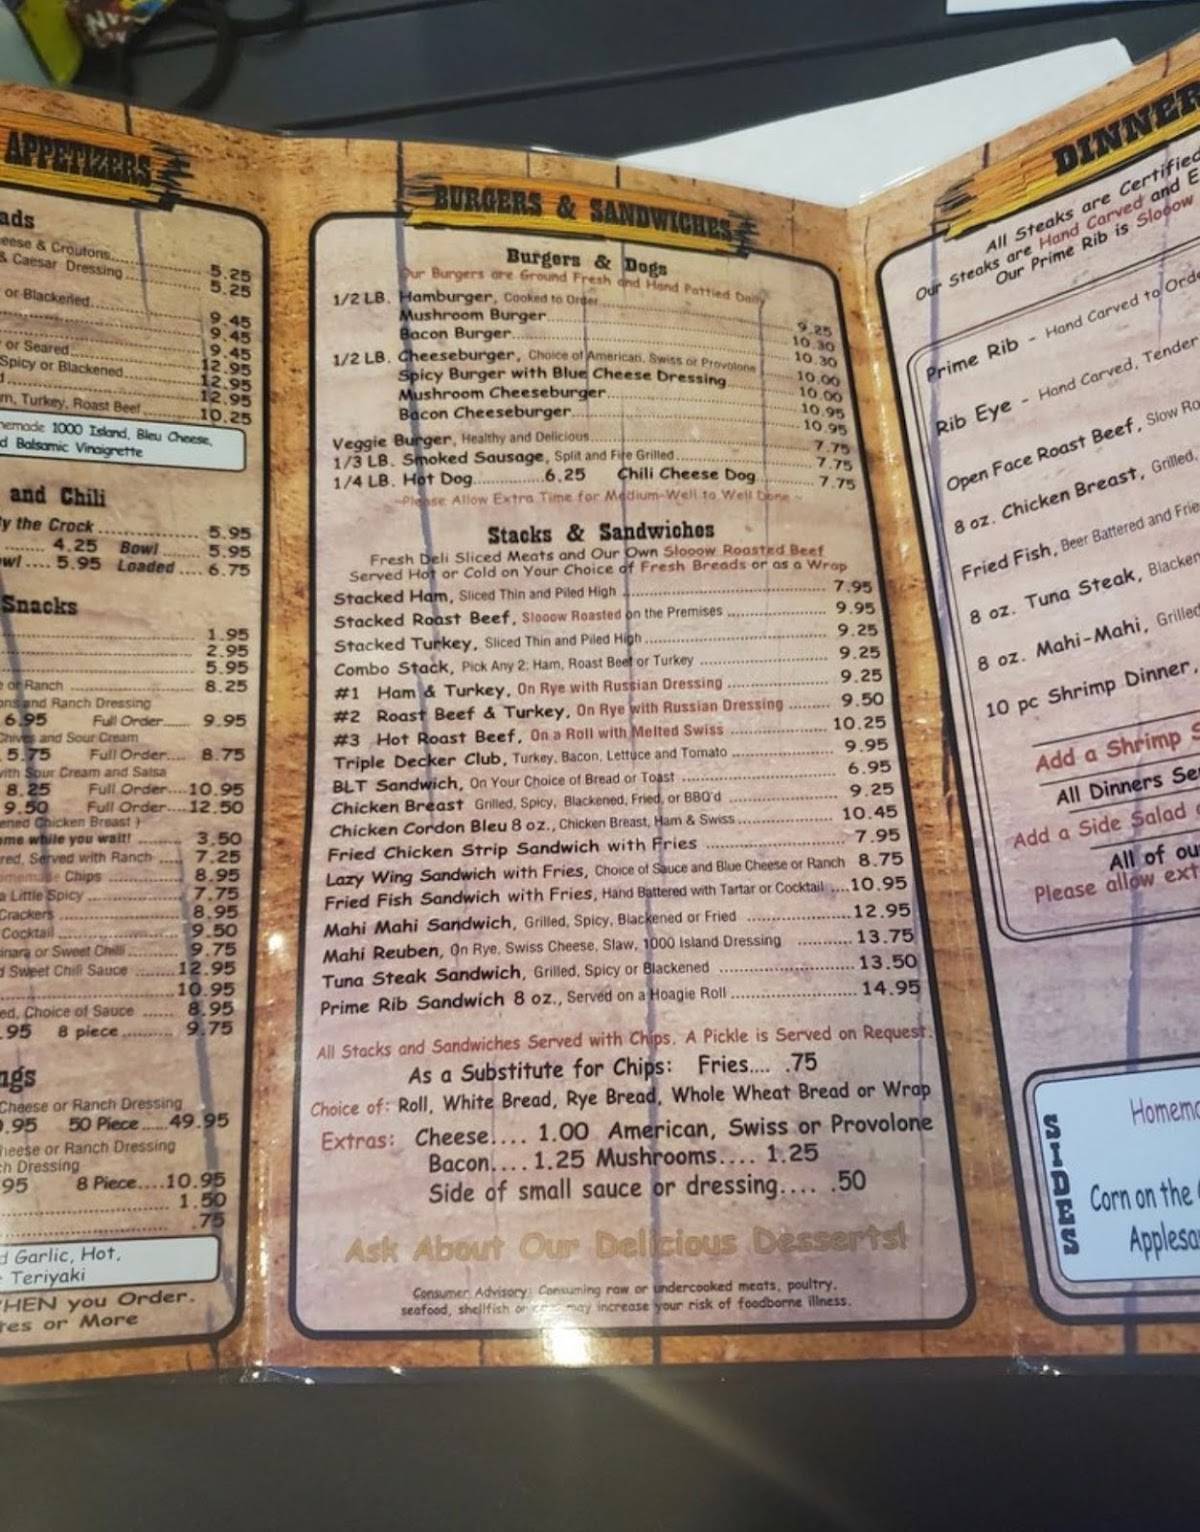 APPETIZERS
ads
eese & Croutons 5.25
& Caesar Dressing 5.25
or Blackened 9.45
9.45
or Seared 9.45
Spicy or Blackened 12.95
12.95
12.95
m, Turkey, Roast Beef 10.25
emade 1000 Island, Bleu Cheese,
d Balsamic Vinaigrette
and Chili
y the Crock 5.95
4.25 Bowl 5.95
owl .... 5.95 Loaded .... 6.75
Snacks
1.95
2.95
5.95
e or Ranch 8.25
ans and Ranch Dressing
6.95 Full Order 9.95
Chives and Sour Cream
5.75 Full Order.... 8.75
with Sour Cream and Salsa
8.25 Full Order....10.95
9.50 Full Order....12.50
ened Chicken Breast )
ome while you wait! 3.50
red, Served with Ranch 7.25
omemade Chips 8.95
a Little Spicy 7.75
Crackers 8.95
Cocktail 9.50
inara or Sweet Chili 9.75
d Sweet Chili Sauce 12.95
10.95
ed, Choice of Sauce 8.95
.95 8 piece 9.75
ngs
Cheese or Ranch Dressing
9.95 50 Piece.....49.95
heese or Ranch Dressing
ch Dressing
95 8 Piece....10.95
1.50
.75
d Garlic, Hot,
Teriyaki
HEN you Order.
tes or More
BURGERS & SANDWICHES
Burgers & Dogs
Our Burgers are Ground Fresh and Hand Pattied Daily
1/2 LB. Hamburger, Cooked to Order 9.25
Mushroom Burger 10.30
Bacon Burger 10.30
1/2 LB. Cheeseburger, Choice of American, Swiss or Provolone 10.00
Spicy Burger with Blue Cheese Dressing 10.00
Mushroom Cheeseburger 10.95
Bacon Cheeseburger 10.95
Veggie Burger, Healthy and Delicious 7.75
1/3 LB. Smoked Sausage, Split and Fire Grilled 7.75
1/4 LB. Hot Dog 6.25 Chili Cheese Dog 7.75
~Please Allow Extra Time for Medium-Well to Well Done ~
Stacks & Sandwiches
Fresh Deli Sliced Meats and Our Own Slooow Roasted Beef
Served Hot or Cold on Your Choice of Fresh Breads or as a Wrap
Stacked Ham, Sliced Thin and Piled High 7.95
Stacked Roast Beef, Slooow Roasted on the Premises 9.95
Stacked Turkey, Sliced Thin and Piled High 9.25
Combo Stack, Pick Any 2: Ham, Roast Beef or Turkey 9.25
#1 Ham & Turkey, On Rye with Russian Dressing 9.25
#2 Roast Beef & Turkey, On Rye with Russian Dressing 9.50
#3 Hot Roast Beef, On a Roll with Melted Swiss 10.25
Triple Decker Club, Turkey, Bacon, Lettuce and Tomato 9.95
BLT Sandwich, On Your Choice of Bread or Toast 6.95
Chicken Breast Grilled, Spicy, Blackened, Fried, or BBQ'd 9.25
Chicken Cordon Bleu 8 oz., Chicken Breast, Ham & Swiss 10.45
Fried Chicken Strip Sandwich with Fries 7.95
Lazy Wing Sandwich with Fries, Choice of Sauce and Blue Cheese or Ranch 8.75
Fried Fish Sandwich with Fries, Hand Battered with Tartar or Cocktail ....10.95
Mahi Mahi Sandwich, Grilled, Spicy, Blackened or Fried 12.95
Mahi Reuben, On Rye, Swiss Cheese, Slaw, 1000 Island Dressing 13.75
Tuna Steak Sandwich, Grilled, Spicy or Blackened 13.50
Prime Rib Sandwich 8 oz., Served on a Hoagie Roll 14.95
All Stacks and Sandwiches Served with Chips. A Pickle is Served on Request.
As a Substitute for Chips: Fries.... .75
Choice of: Roll, White Bread, Rye Bread, Whole Wheat Bread or Wrap
Extras: Cheese.... 1.00 American, Swiss or Provolone
Bacon.... 1.25 Mushrooms.... 1.25
Side of small sauce or dressing.... .50
Ask About Our Delicious Desserts!
Consumer Advisory: Consuming raw or undercooked meats, poultry,
seafood, shellfish or may increase your risk of foodborne illness.
DINNER
All Steaks are Certified
Our Steaks are Hand Carved and E
Our Prime Rib is Slooow
Prime Rib - Hand Carved to Orde
Rib Eye - Hand Carved, Tender
Open Face Roast Beef, Slow Ro
8 oz. Chicken Breast, Grilled,
Fried Fish, Beer Battered and Frie
8 oz. Tuna Steak, Blacken
8 oz. Mahi-Mahi, Grilled
10 pc Shrimp Dinner,
Add a Shrimp S
All Dinners Se
Add a Side Salad
All of ou
Please allow ext
SIDES
Homema
Corn on the
Applesa